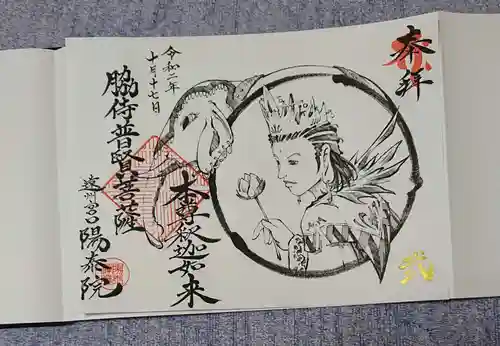 奉拝
本尊釈迦如来
令和二年
十月十七日
脇侍普賢菩薩
遠州宮口
陽泰院